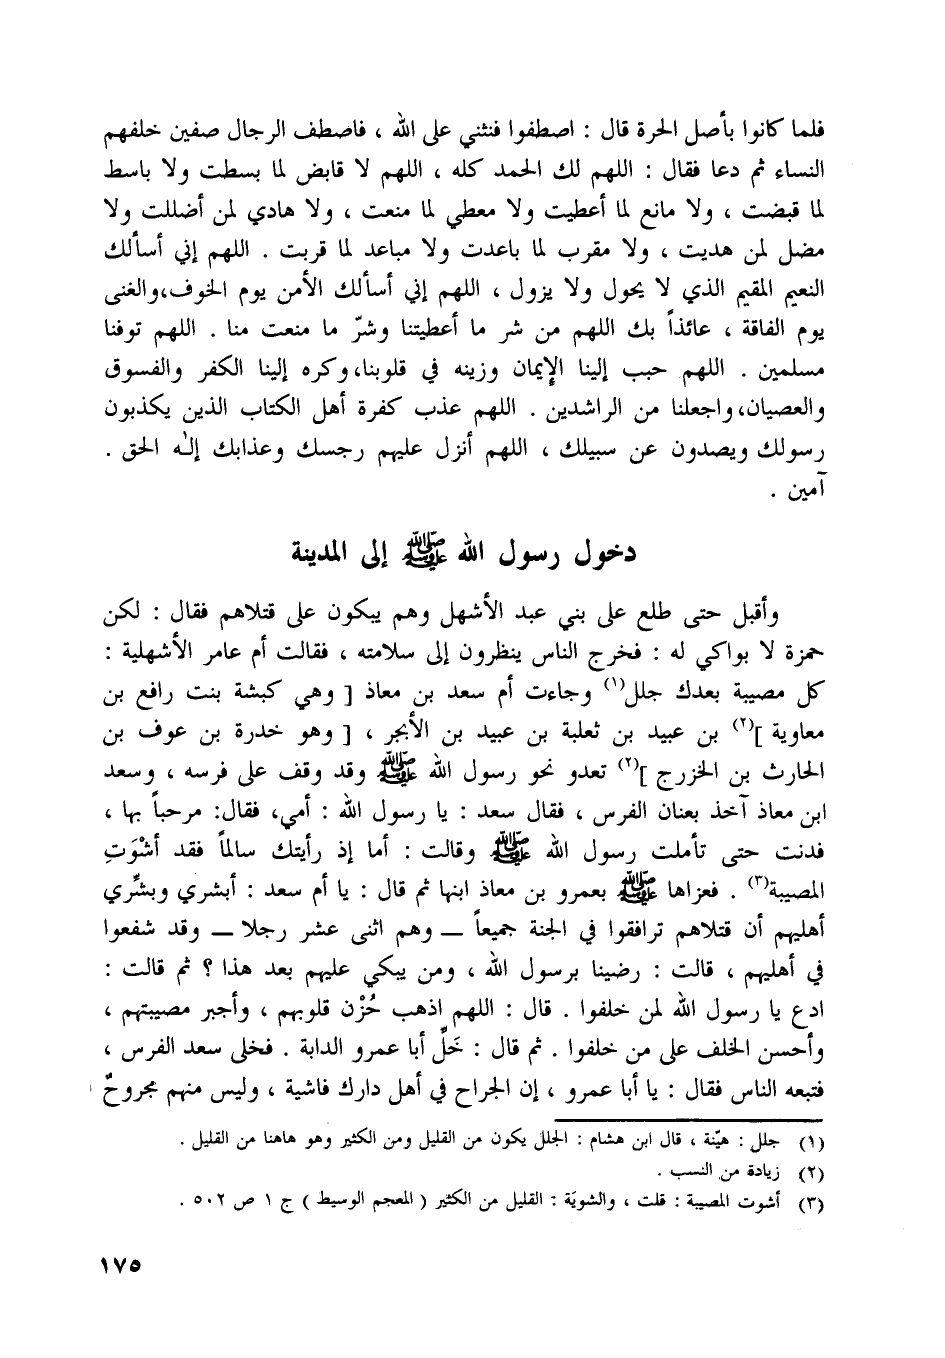 فلما كانوا بأصل الحرة قال : اصطفوا فنثني على الله ، فاصطف الرجال صفين خلفهم
النساء ثم دعا فقال : اللهم لك الحمد كله ، اللهم لا قابض لما بسطت ولا باسط
لما قبضت ، ولا مانع لما أعطيت ولا معطي لما منعت ، ولا هادي لمن أضللت ولا
مضل لمن هديت ، ولا مقرب لما باعدت ولا مباعد لما قربت . اللهم إني أسألك
النعيم المقيم الذي لا يحول ولا يزول ، اللهم إني أسألك الأمن يوم الخوف،والغنى
يوم الفاقة ، عائذاً بك اللهم من شر ما أعطيتنا وشرّ ما منعت منا . اللهم توفنا
مسلمين . اللهم حبب إلينا الإيمان وزينه في قلوبنا،وكره إلينا الكفر والفسوق
والعصيان،واجعلنا من الراشدين . اللهم عذب كفرة أهل الكتاب الذين يكذبون
رسولك ويصدون عن سبيلك ، اللهم أنزل عليهم رجسك وعذابك إلٰه الحق .
آمين .
دخول رسول الله ﷺ إلى المدينة
وأقبل حتى طلع على بني عبد الأشهل وهم يبكون على قتلاهم فقال : لكن
حمزة لا بواكي له : فخرج الناس ينظرون إلى سلامته ، فقالت أم عامر الأشهلية :
كل مصيبة بعدك جلل(١) وجاءت أم سعد بن معاذ [ وهي كبشة بنت رافع بن
معاوية ](٢) بن عبيد بن ثعلبة بن عبيد بن الأبجر ، [ وهو خدرة بن عوف بن
الحارث بن الخزرج ](٢) تعدو نحو رسول الله ﷺ وقد وقف على فرسه ، وسعد
ابن معاذ آخذ بعنان الفرس ، فقال سعد : يا رسول الله : أمي، فقال: مرحباً بها ،
فدنت حتى تأملت رسول الله ﷺ وقالت : أما إذ رأيتك سالماً فقد أشْوَتِ
المصيبة(٣) . فعزاها ﷺ بعمرو بن معاذ ابنها ثم قال : يا أم سعد : أبشري وبشّري
أهليهم أن قتلاهم ترافقوا في الجنة جميعاً — وهم اثنى عشر رجلا — وقد شفعوا
في أهليهم ، قالت : رضينا برسول الله ، ومن يبكي عليهم بعد هذا ؟ ثم قالت :
ادع يا رسول الله لمن خلفوا . قال : اللهم اذهب حُزْن قلوبهم ، وأجبر مصيبتهم ،
وأحسن الخلف على من خلفوا . ثم قال : خَلِّ أبا عمرو الدابة . فخلى سعد الفرس ،
فتبعه الناس فقال : يا أبا عمرو ، إن الجراح في أهل دارك فاشية ، وليس منهم مجروحٌ
(١) جلل : هيّنة ، قال ابن هشام : الجلل يكون من القليل ومن الكثير وهو هاهنا من القليل .
(٢) زيادة من النسب .
(٣) أشوت المصيبة : قلت ، والشويَة : القليل من الكثير ( المعجم الوسيط ) ج ١ ص ٥٠٢ .
١٧٥